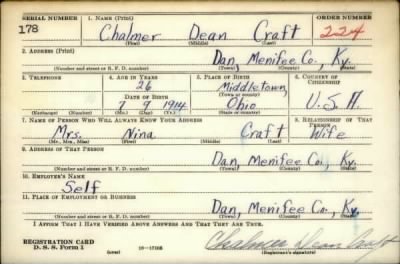 SERIAL NUMBER 1. NAME (Print) ORDER NUMBER
178 Chalmer Dean Craft 224
(First) (Middle) (Last)
2. ADDRESS (Print)
Dan, Menifee Co., Ky.
(Number and street or R. F. D. number) (Town) (County) (State)
3. TELEPHONE 4. AGE IN YEARS 5. PLACE OF BIRTH 6. COUNTRY OF CITIZENSHIP
26 Middletown,
(Town or county)
DATE OF BIRTH
7 9 1914 Ohio U.S.A.
(Exchange) (Number) (Mo.) (Day) (Yr.) (State or country)
7. NAME OF PERSON WHO WILL ALWAYS KNOW YOUR ADDRESS 8. RELATIONSHIP OF THAT PERSON
Mrs. Nina Craft Wife
(Mr., Mrs., Miss) (First) (Middle) (Last)
9. ADDRESS OF THAT PERSON
Dan, Menifee Co., Ky.
(Number and street or R. F. D. number) (Town) (County) (State)
10. EMPLOYER'S NAME
Self
11. PLACE OF EMPLOYMENT OR BUSINESS
Dan, Menifee Co., Ky.
(Number and street or R. F. D. number) (Town) (County) (State)
I AFFIRM THAT I HAVE VERIFIED ABOVE ANSWERS AND THAT THEY ARE TRUE.
REGISTRATION CARD
D. S. S. Form 1 (over) Chalmer Dean Craft
(Registrant's signature)